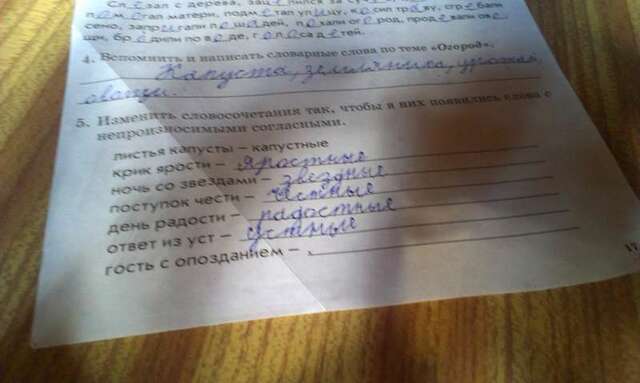 Сл е зал с дерева, зац е пился за су
п о м о гал матери, подм е тал ул и цу, к о сил тр а ву, сгр е бали
сено, запр я гали л о ш а дей, п о хали ог о род, прод е вали ов о
щи, бр о дили по в о де, г о л о са д е тей.
4. Вспомнить и написать словарные слова по теме «Огород».
Капуста, земляника, урожай,
овощи.
5. Изменить словосочетания так, чтобы в них появились слова с
непроизносимыми согласными.
листья капусты – капустные
крик ярости – яростные
ночь со звездами – звездные
поступок чести – честные
день радости – радостные
ответ из уст – устные
гость с опозданием –